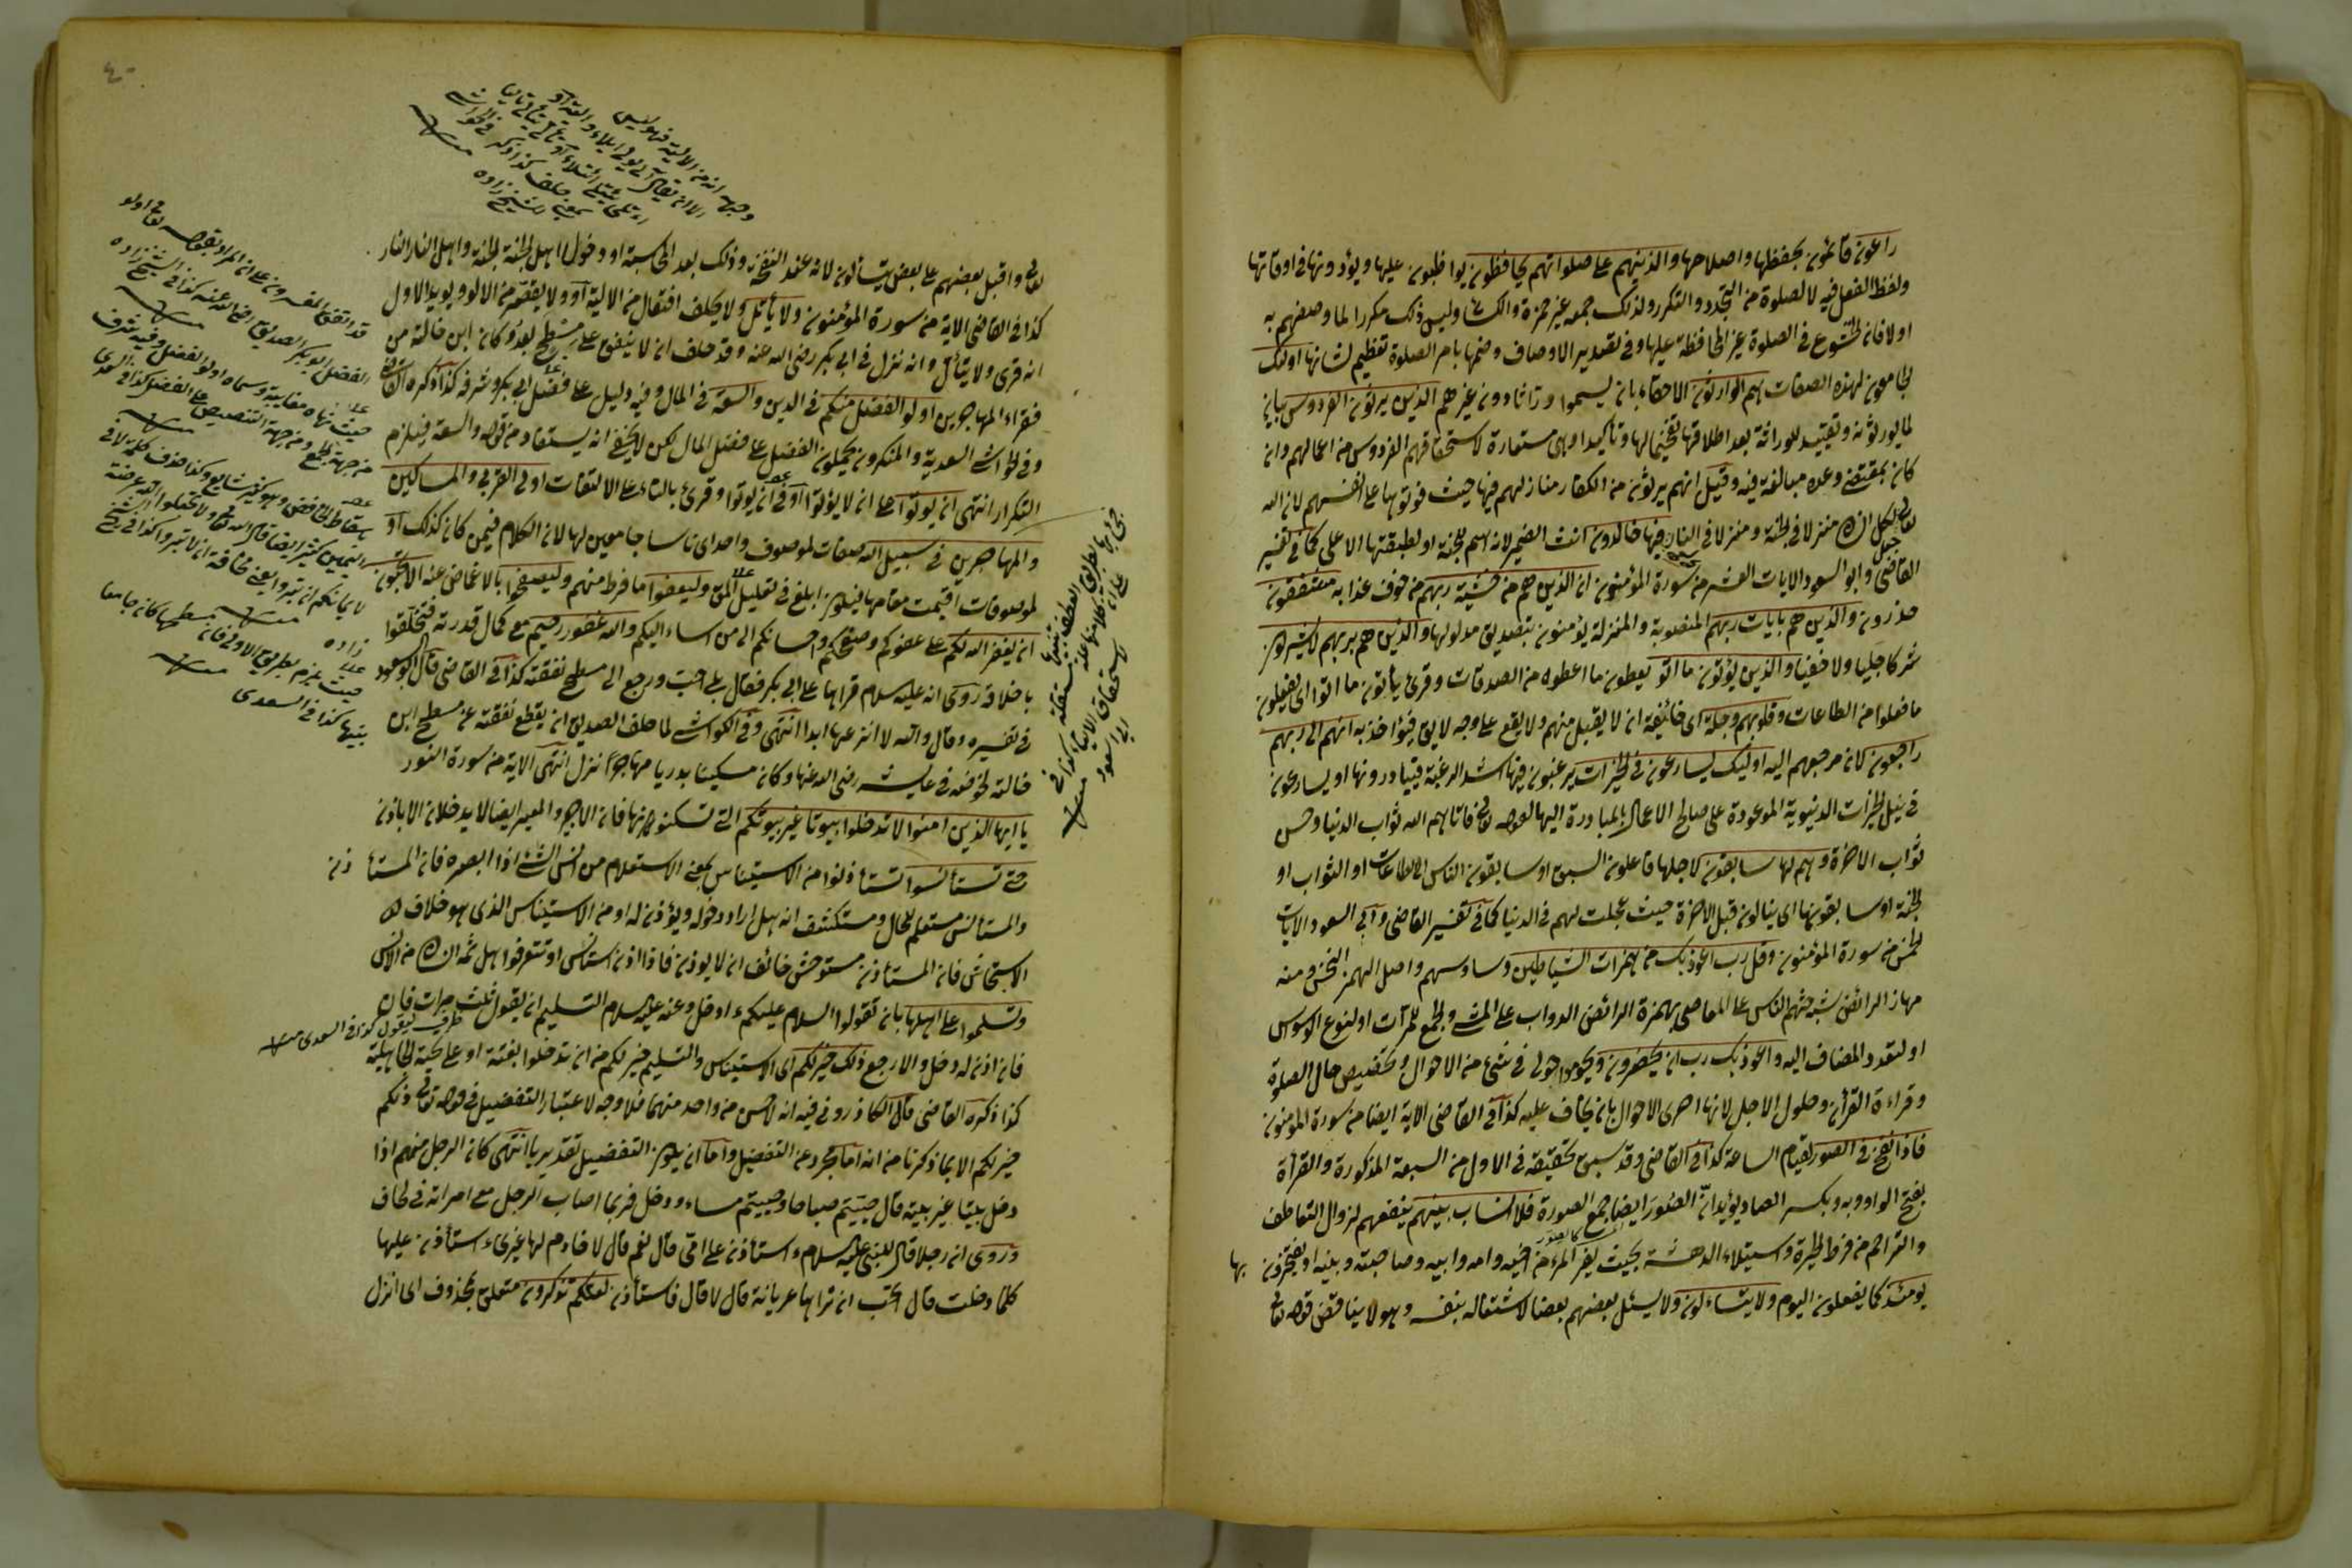 راعون قائمون بحفظها واصلاحها والذينهم على صلواتهم يحافظون يواظبون عليها ويؤدونها فى اوقاتها
ولفظ الفعل فيه لما لصلوة من التجدد والتكرر ولذلك جمعه غير حمزة والكسائى وليس ذلك مكررا لما وصفهم به
اولا فان الخشوع فى الصلوة غير المحافظة عليها وفى تصدير الاوصاف وختمها بامر الصلوة تعظيم لشانها اولئك
الجامعون لهذه الصفات هم الوارثون الاحقاء بان يسموا وراثا دون غيرهم الذين يرثون الفردوس بيان
لما يورثونه وتقييد للوراثة بعد اطلاقها تفخيما لها وتأكيدا وهى مستعارة لاستحقاقهم الفردوس من اعمالهم وان
كان بمقتضى وعده مبالغة فيه وقيل انهم يرثون من الكفار منازلهم فيها حيث فوتوها على انفسهم لان الله
تعالى لكل انسان منزلا فى الجنة ومنزلا فى النار فيها خالدون انث الضمير لانه اسم للجنة او لطبقتها الاعلى كما فى تفسير
القاضى وابو السعود الايات العشر من سورة المؤمنون ان الذين هم من خشية ربهم من خوف عذابه مشفقون
حذرون والذين هم بايات ربهم المنصوبة والمنزلة يؤمنون بتصديق مدلولها والذين هم بربهم لا يشركون
شركا جليا ولا خفيا والذين يؤتون ما اتوا يعطون ما اعطوه من الصدقات وقرئ يأتون ما اتوا اى يفعلون
ما فعلوا من الطاعات وقلوبهم وجلة اى خائفة ان لا يقبل منهم ولا يقع على وجه لايق فيؤاخذ به انهم الى ربهم
راجعون لان مرجعهم اليه اولئك يسارعون فى الخيرات يرغبون فيها اشد الرغبة فيبادرونها او يسارعون
فى نيل الخيرات الدنيوية الموعودة على صالح الاعمال بالمبادرة اليها لقوله تعالى فاتاهم الله ثواب الدنيا وحسن
ثواب الاخرة وهم لها سابقون لاجلها فاعلون السبق او سابقون الناس الى الطاعات او الثواب او
الجنة او سابقونها اى ينالون قبل الاخرة حيث عجلت لهم فى الدنيا كما فى تفسير القاضى وابى السعود الايات
الخمس من سورة المؤمنون وقل رب اعوذ بك من همزات الشياطين وساوسهم واصل الهمز النخس ومنه
مهماز الرائض شبه حثهم الناس على المعاصى بهمزة الرائض الدواب على المشى والجمع للمرات او لتنوع الوسواس
او لتعدد المضاف اليه واعوذ بك رب ان يحضرون ويحوموا حولى فى شئ من الاحوال وتخصيص حال الصلوة
وقراءة القرأن وحلول الاجل لانها احرى الاحوال بان يخاف عليه كذا فى القاضى الاية ايضا من سورة المؤمنون
فاذا نفخ فى الصور لقيام الساعة كذا فى القاضى وقد سبق تحقيقه فى الاول من السبعة المذكورة والقرأة
بفتح الواو وبه وبكسر الصاد يؤيد انّ الصور ايضا جمع الصورة فلا انساب بينهم ينفعهم لزوال التعاطف
والتراحم من فرط الحيرة واستيلاء الدهشة بحيث يفر المرء من اخيه وامه وابيه وصاحبته وبنيه او يفتخرون بها
يومئذ كما يفعلون اليوم ولا يتساءلون ولا يسئل بعضهم بعضا لاشتغاله بنفسه وهو لا يناقض قوله تعالى
وجهه انه من الالية فهو ليس
الا ان يقال آلى يولى ايلاء
كذا ذكر فى الحواشى
لشيخ زاده
تعالى واقبل بعضهم على بعض يتسائلون لانه عند النفخة وذلك بعد المحاسبة او دخول اهل الجنة الجنة واهل النار النار
كذا فى القاضى الاية من سورة المؤمنون ولا يأتل ولا يحلف افتعال من الالية او ولا يقصر من الالو ويؤيد الاول
انه قرى ولا يتألّ وانه نزل فى ابى بكر رضى الله عنه وقد حلف ان لا ينفق على مسطح بعد وكان ابن خالة من
فقراء المهاجرين اولو الفضل منكم فى الدين والسعة فى المال وفيه دليل على فضل ابى بكر وشرفه كذا ذكره القاضى
وفى الحواشى السعدية والمنكرون يحملون الفضل على فضل المال لكن لا يخفى انه يستفاد من قوله والسعة فيلزم
التكرار انتهى ان يؤتوا على ان لا يؤتوا او فى ان يؤتوا وقرئ بالتاء على الالتفات اولى القربى والمساكين
والمهاجرين فى سبيل الله صفات لموصوف واحد اى ناسا جامعين لها لان الكلام فيمن كان كذلك او
لموصوفات اقيمت مقامها فيكون ابلغ فى تعليل المق وليعفوا ما فرط منهم وليصفحوا بالاغماض عنه الا تحبون
ان يغفر الله لكم على عفوكم وصفحكم واحسانكم الى من اساء اليكم والله غفور رحيم مع كمال قدرته فتخلقوا
باخلاقه روى انه عليه السلام قرأها على ابى بكر فقال بلى احب ورجع الى مسطح نفقته كذا فى القاضى قال ابو السعود
فى تفسيره وقال والله لا انزعها ابدا انتهى وفى الكواشى لما حلف الصديق ان يقطع نفقته عن مسطح ابن
خالته لخوضه فى عايشه رضى الله عنها وكان مسكينا بدريا مهاجرا نزل انتهى الاية من سورة النور
يا ايها الذين امنوا لا تدخلوا بيوتا غير بيوتكم التى تسكنونها فان الاجر والمعير ايضا لا يدخلان الا باذن
حتى تستأنسوا تستأذنوا من الاستيناس بمعنى الاستعلام من انس الشئ اذا ابصره فان المستأذن
والمستأنس مستعلم للحال ومستكشف انه هل اراد دخوله ويؤذن له او من الاستيناس الذى هو خلاف
الاستيحاش فان المستأذن مستوحش خائف ان لا يؤذن فاذا اذن استأنس او تتعرفوا هل ثمه انسان من الانس
وتسلموا على اهلها بان تقولوا السلام عليكم ءادخل وعنه عليه السلام التسليم ان يقول ثلث مرات فان
ظرف ليقول كذا فى السعدى منه
فان اذن له دخل والا رجع ذلك خير لكم اى الاستيناس والتسليم خير لكم من ان تدخلوا بغتة او على تحية الجاهلية
كذا ذكره القاضى قال الكازرونى فيه انه لا حسن من واحد منهما فلا وجه لاعتبار التفضيل فى قوله تعالى ذلكم
خير لكم الا بما ذكرنا من انه اما مجرد عن التفضيل واما ان يكون التفضيل تقديريا انتهى كان الرجل منهم اذا
دخل بيتا غير بيته قال حييتم صباحا وحييتم مساء ودخل فربما اصاب الرجل مع امراته فى لحاف
وروى ان رجلا قال للنبى عليه السلام ءاستأذن على امى قال نعم قال لا خادم لها غيرى ءاستأذن عليها
كلما دخلت قال اتحب ان تراها عريانة قال لا قال فاستأذن لعلكم تذكرون متعلق بمحذوف اى انزل
قد اتفق المفسرون على ان المراد بقوله تعالى اولو
الفضل ابو بكر الصديق رضى الله عنه كذا فى الشيخ زاده